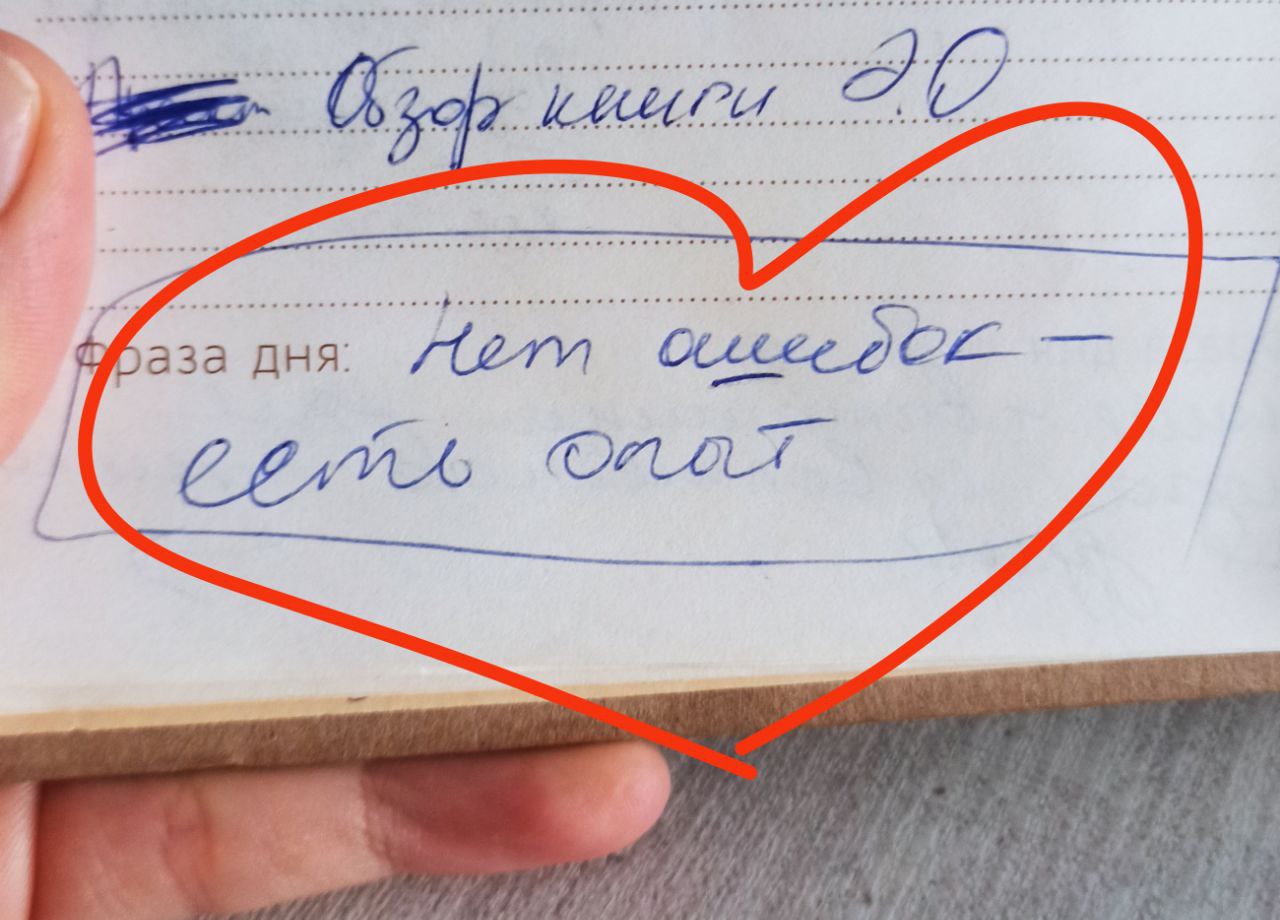 Обзор книги Э.О
Фраза дня: Нет ошибок –
есть опыт